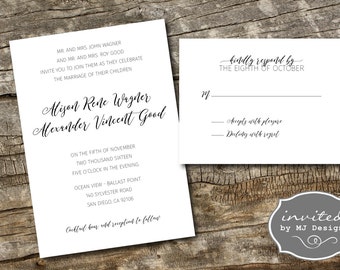 MR. AND MRS. JOHN WAGNER
AND MR. AND MRS. ROY GOOD
INVITE YOU TO JOIN THEM AS THEY CELEBRATE
THE MARRIAGE OF THEIR CHILDREN
Alison Rene Wagner
Alexander Vincent Good
ON THE FIFTH OF NOVEMBER
TWO THOUSAND SIXTEEN
FIVE O'CLOCK IN THE EVENING
OCEAN VIEW - BALLAST POINT
140 SYLVESTER ROAD
SAN DIEGO, CA 92106
Cocktail hour and reception to follow
kindly respond by
THE EIGHTH OF OCTOBER
M
Accepts with pleasure
Declines with regret
invited
by MJ Design